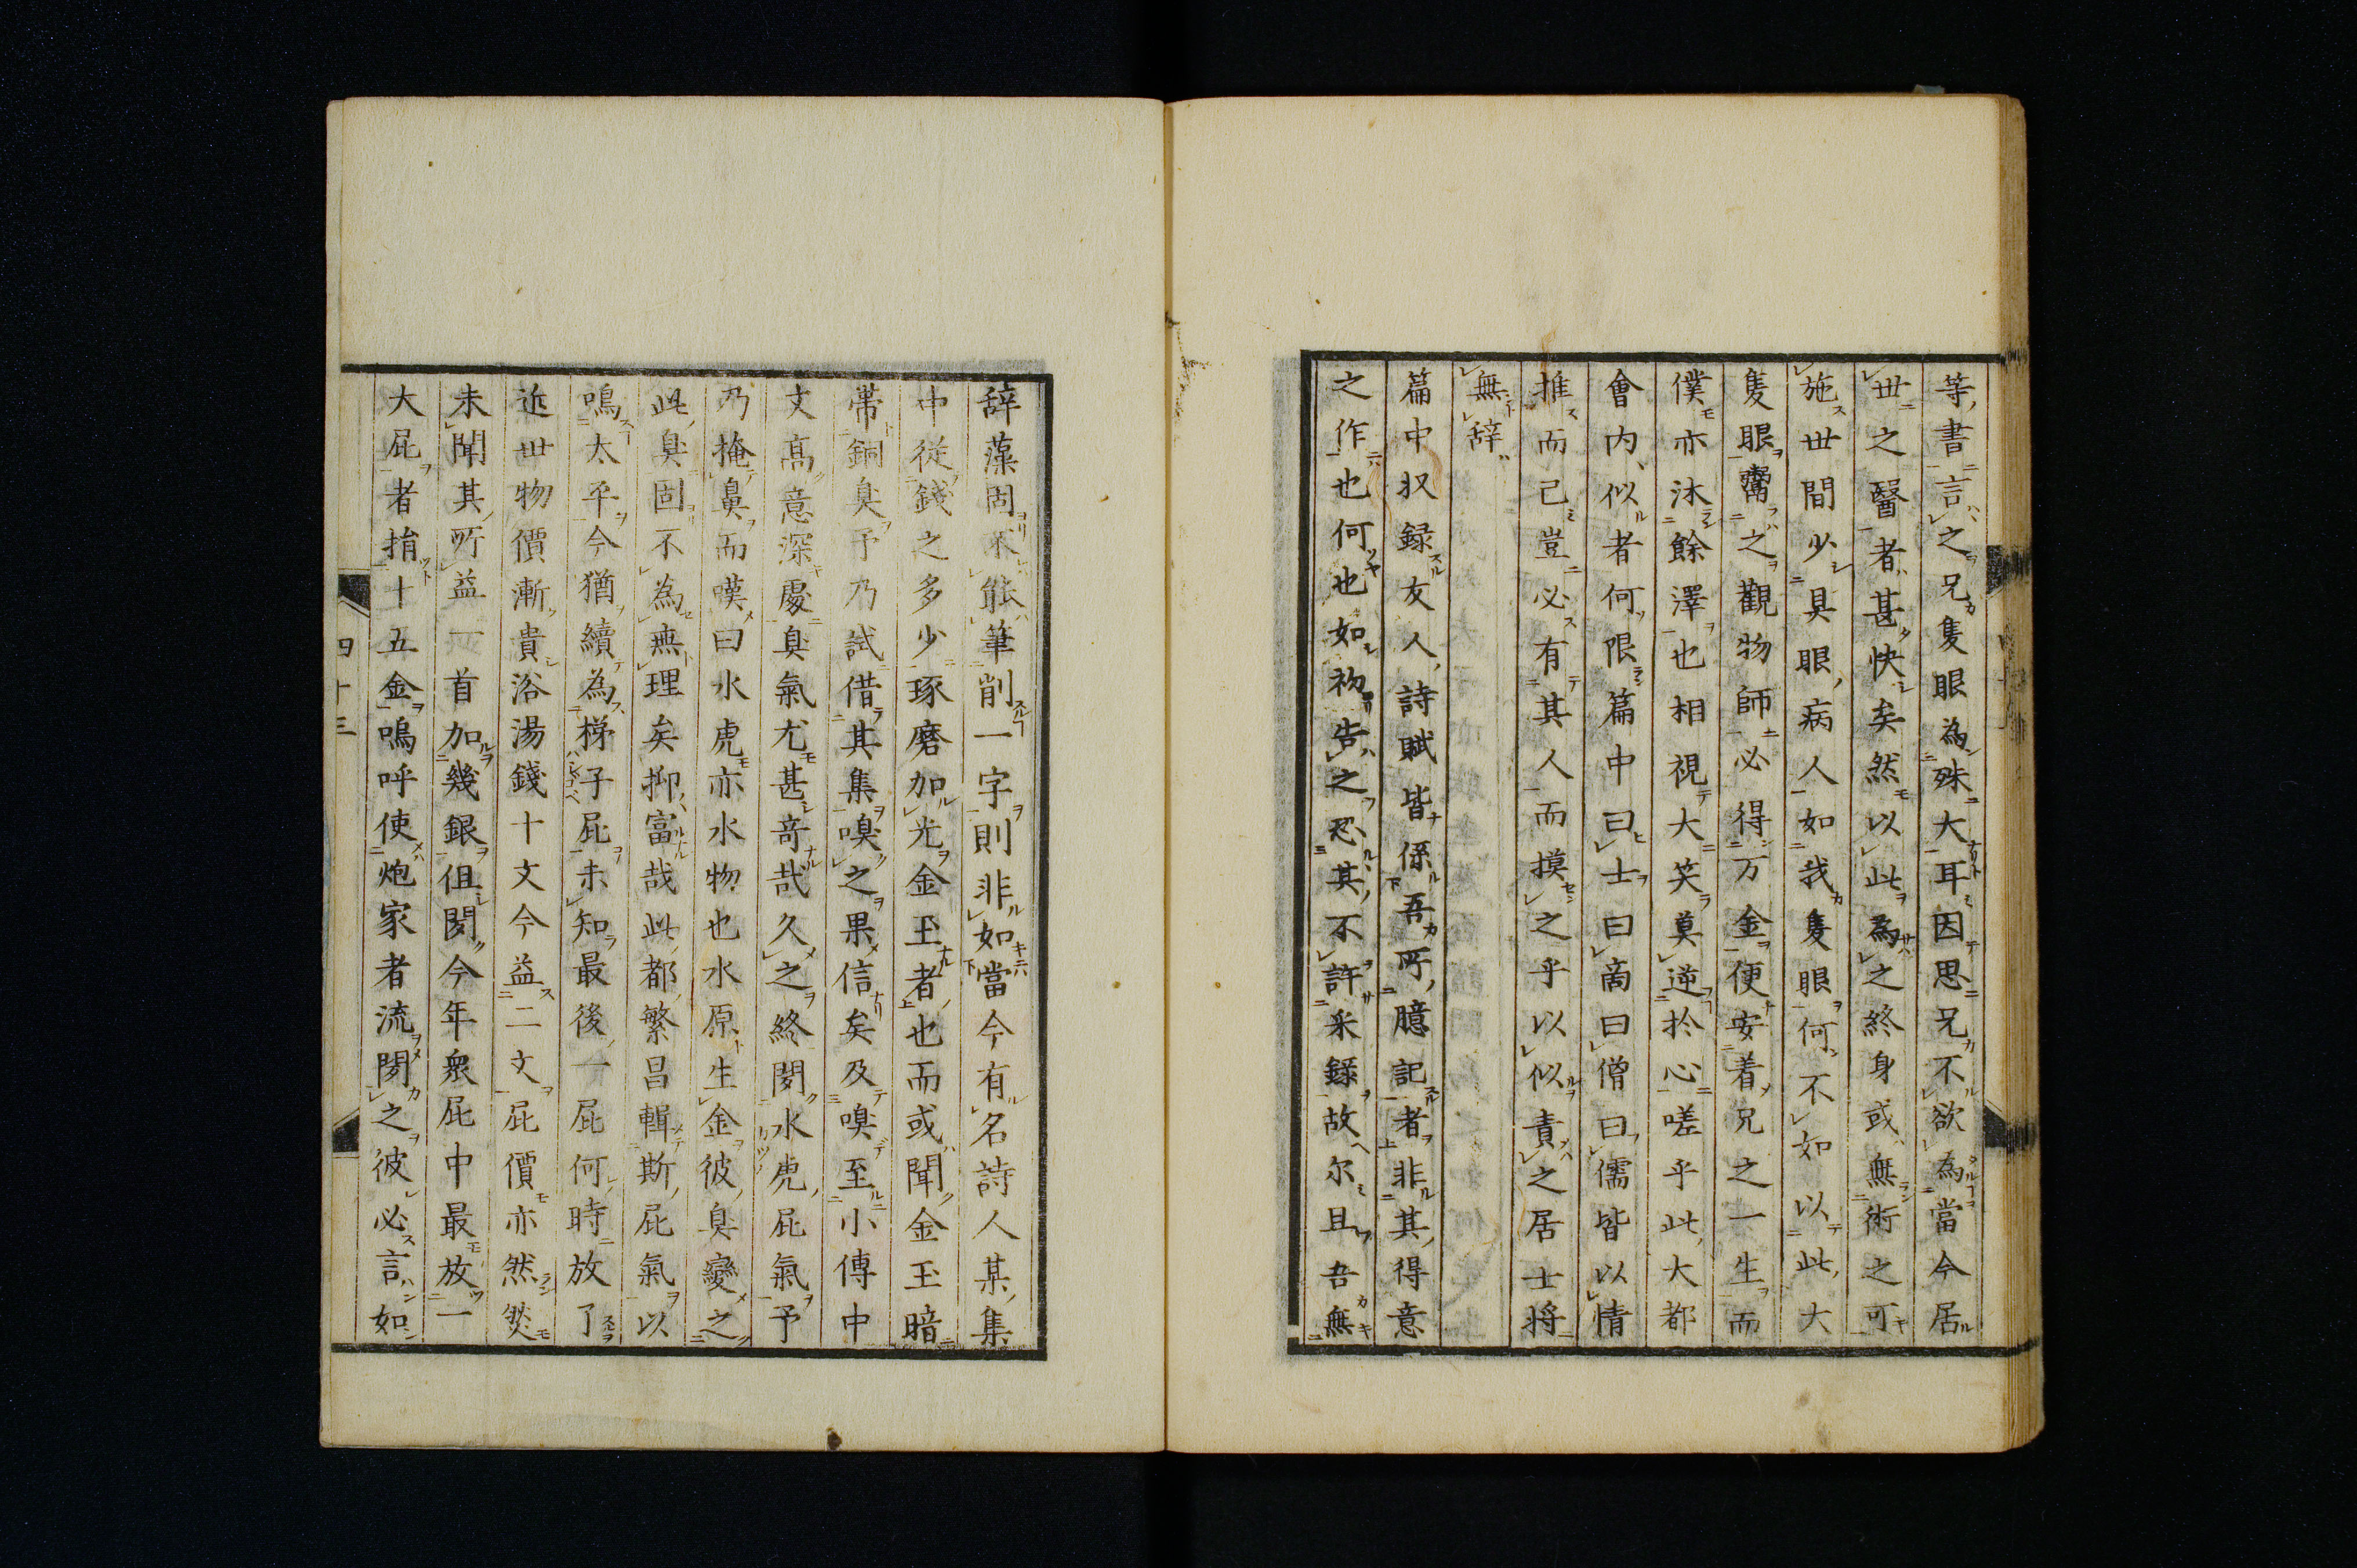 等書言之兄隻眼為殊大耳因思兄不欲為當今居
世之醫者甚快矣然以此為之終身或無術之可
施世間少具眼病人如我隻眼何不如以此大
隻眼鬻之觀物師必得万金便安着兄之一生而
僕亦沐餘澤也相視大笑莫逆於心嗟乎此大都
會内似者何限篇中曰士曰商曰僧曰儒皆以情
推而已豈必有其人而摸之乎以似責之居士将
無辞
篇中収録友人詩賦皆係吾所臆記者非其得意
之作也何也如初告之恐其不許采録故尔且吾無
辞藻固不能筆削一字則非如當今有名詩人某集
中従錢之多少琢磨加光金玉者也而或聞金玉暗
帯銅臭予乃試借其集嗅之果信矣及嗅至小傳中
文高意深處臭氣尤甚竒哉久之終閧水虎屁氣予
乃掩鼻而嘆曰水虎亦水物也水原生金彼臭變之
此臭固不為無理矣抑富哉此都繁昌輯斯屁氣以
鳴太平今猶續為梯子屁未知最後一屁何時放了
近世物價漸貴浴湯錢十文今益二文屁價亦然然
未聞其所益一首加幾銀但閧今年衆屁中最放一
大屁者揹十五金嗚呼使炮家者流閧之彼必言如
四十三